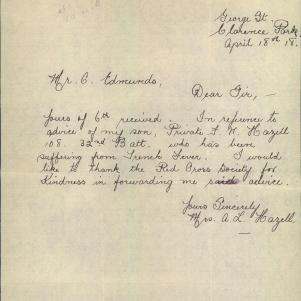 George St.
Clarence Park
April 18th 18.
Mr. C. Edmunds,
Dear Sir, —
Yours of 6th received. In refrence to
advice of my son, Private F. W. Hazell
108. 32nd Batt. who has been
suffering from Trench Fever. I would
like to thank the Red Cross Society for
kindness in forwarding me said advice.
Yours Sincerely
Mrs. A. L. Hazell